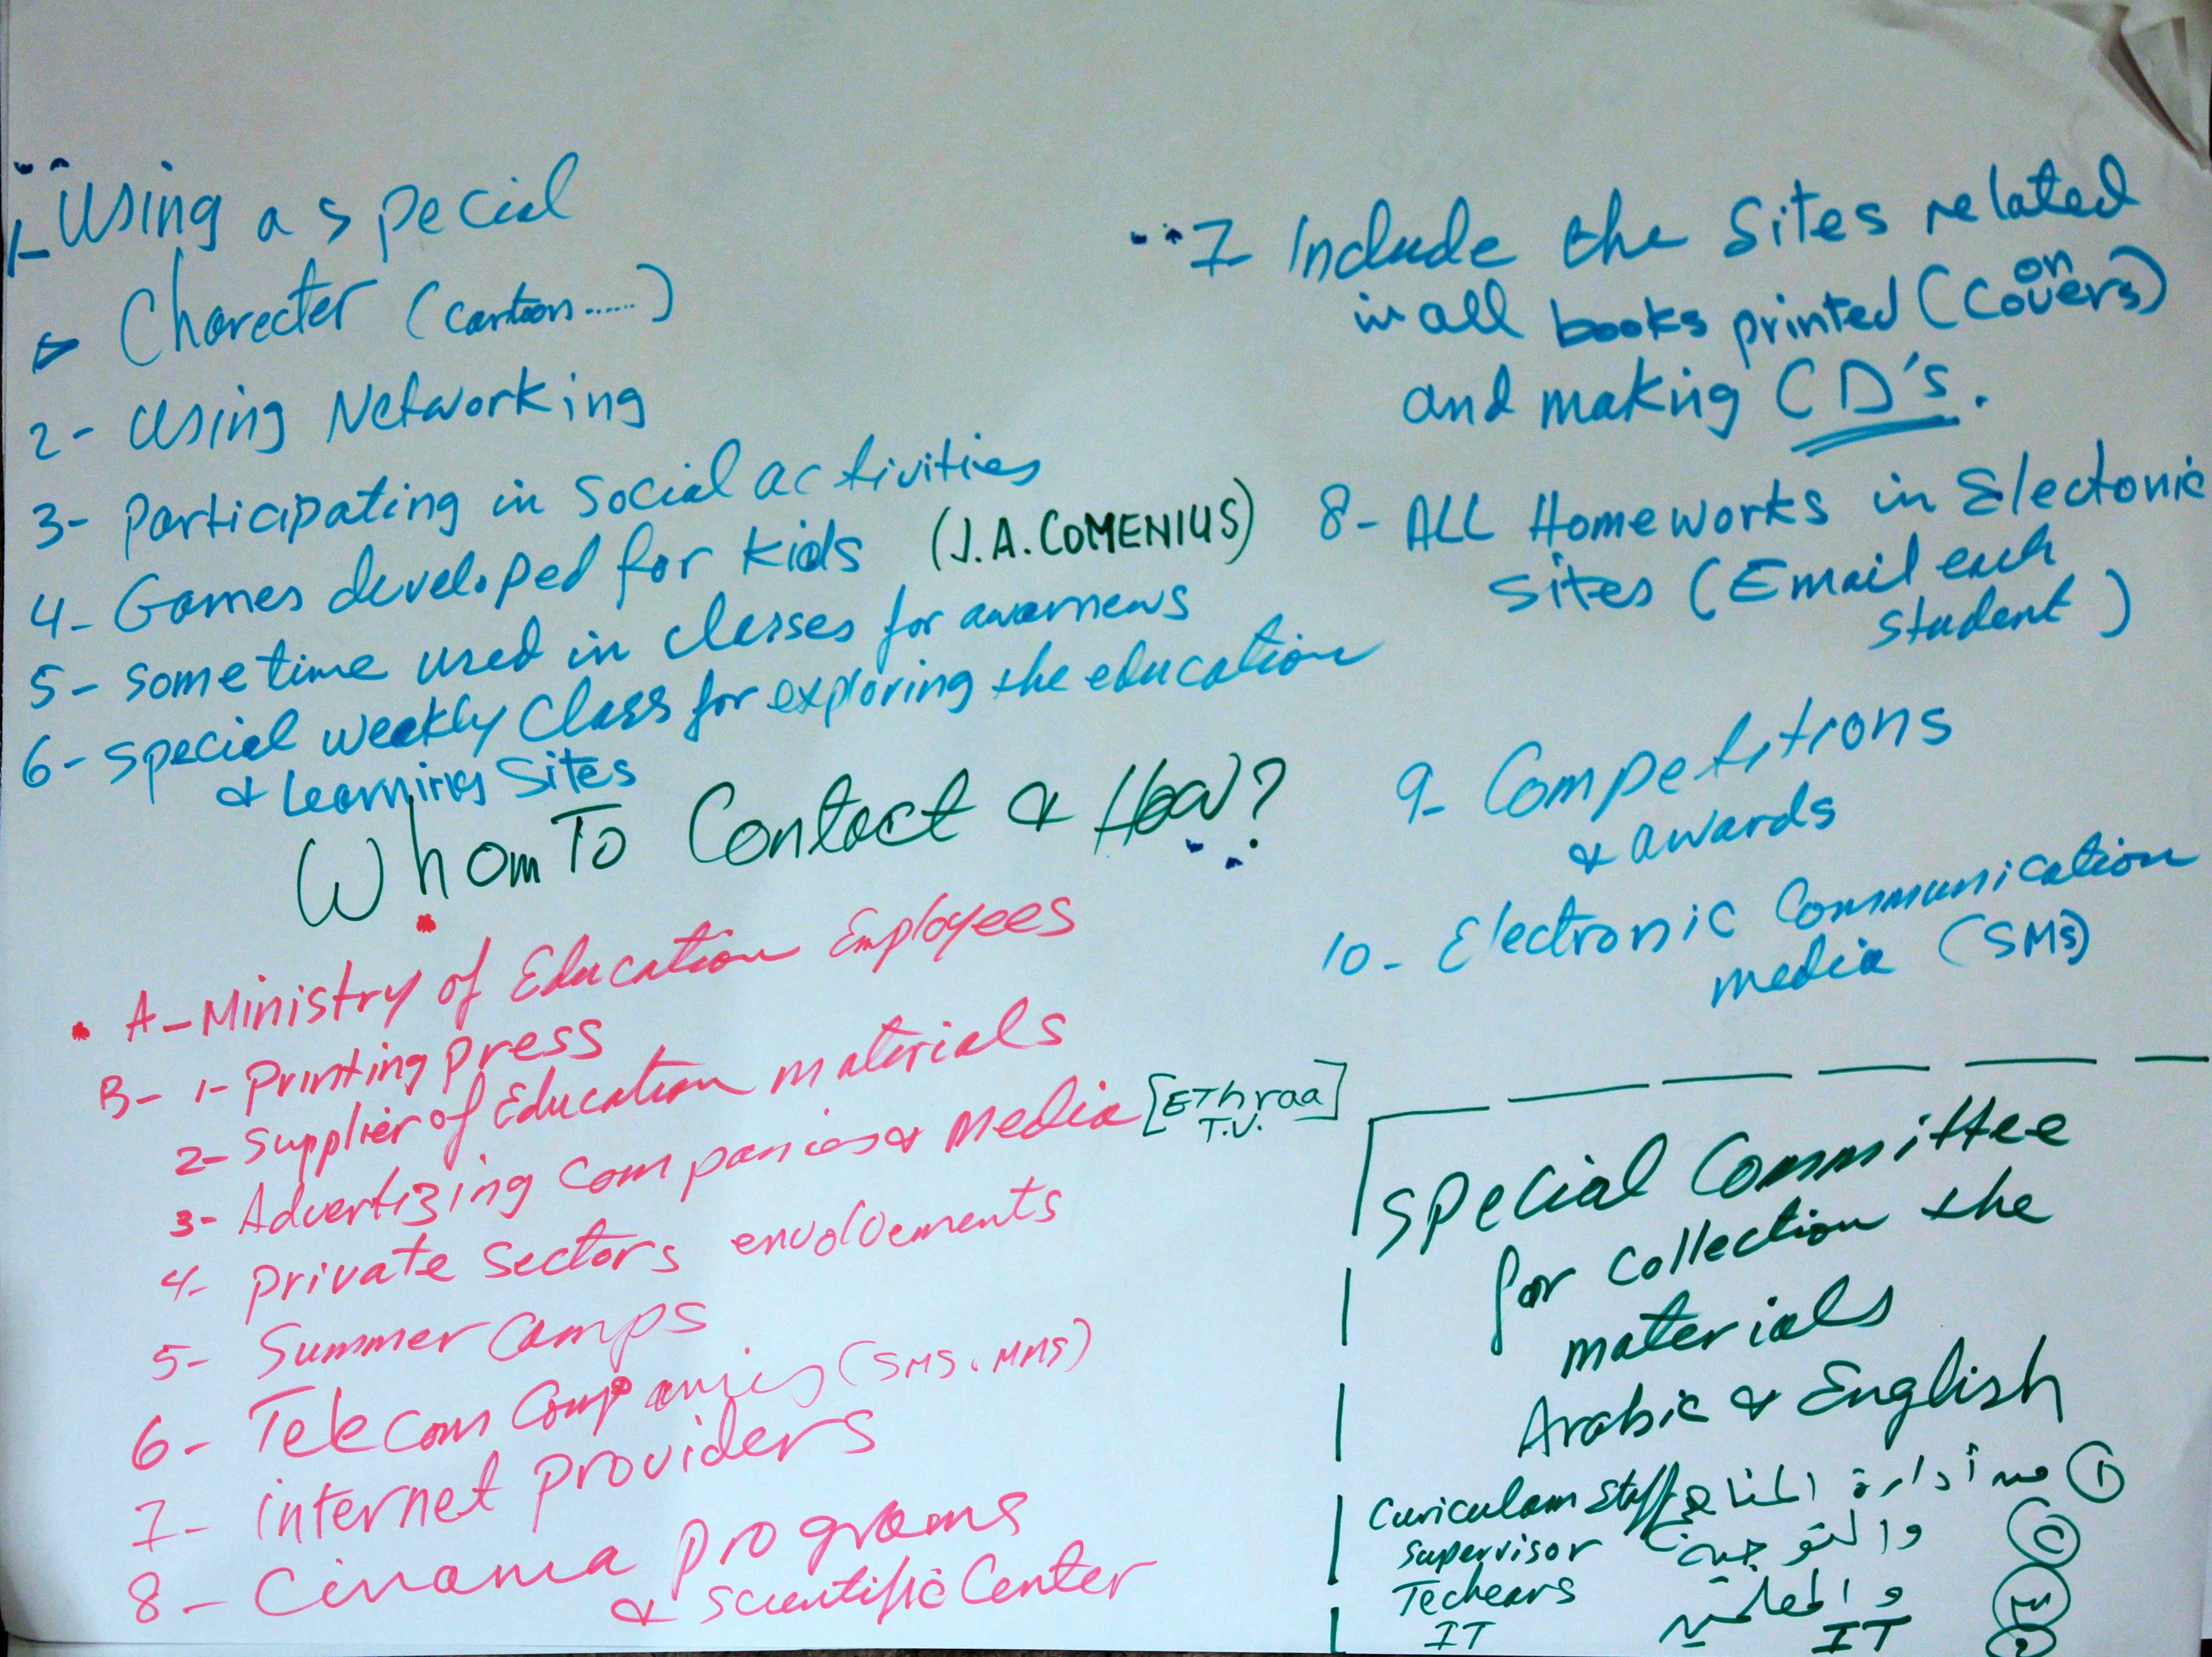 1- Using a special
Charecter (cartoon......)
2- Using Networking
3- Participating in Social activities
4- Games developed for kids (J.A. COMENIUS)
5- Sometime used in classes for awarnews
6- Special weekly Class for exploring the education
& Learning Sites
7- Include the Sites related
in all books printed (on Covers)
and making CD's.
8- ALL Homeworks in Electonic
Sites (Email each
student)
9- Competitions
& awards
10- Electronic Communication
media (SMS)
Whom To Contact & How?
A- Ministry of Education Employees
B- 1- Printing press
2- Supplier of Education materials
3- Advertizing companies & Media [EThraa
T.V.]
4- private sectors envolvements
5- Summer Camps
6- Telecom Companies (SMS. MMS)
7- internet providers
8- Cinama programs
& scientific Center
Special Committee
for collection the
materials
Arabic & English
Curiculam Staff من أدارة المناهج ①
Supervisor والتوجيه ②
Techears والمعلمين ③
IT IT